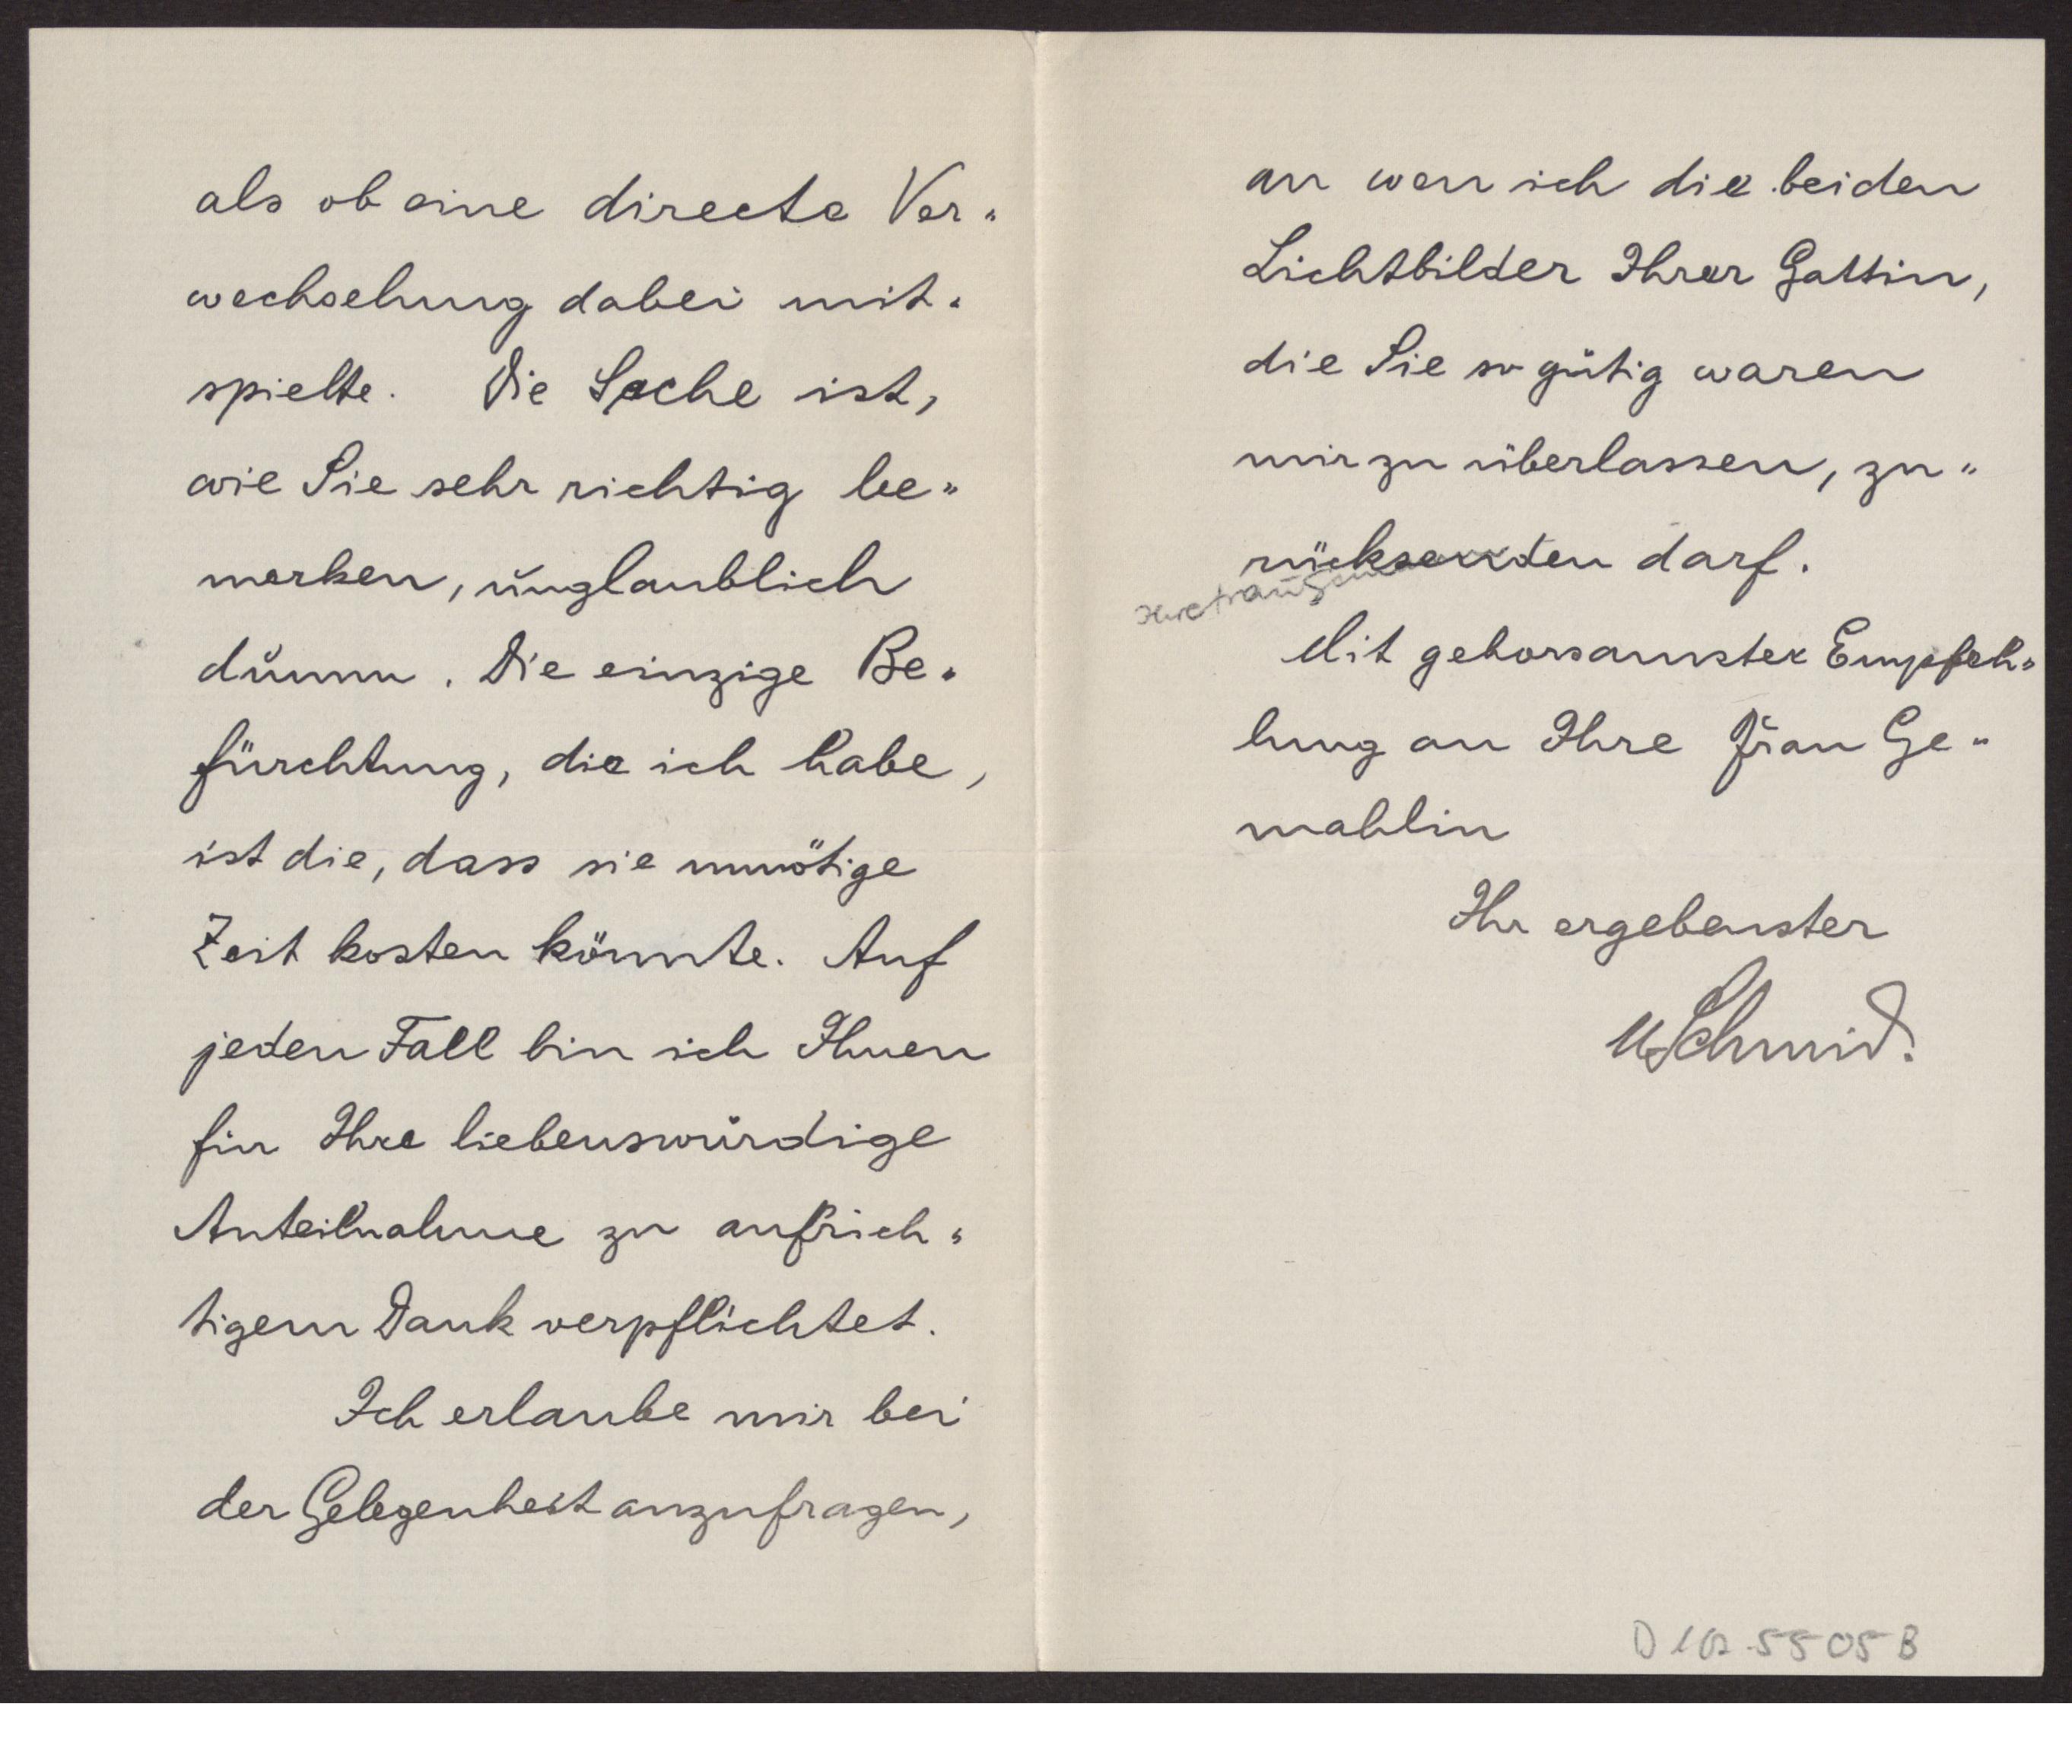 als ob eine directe Ver-
wechselung dabei mit-
spielte. Die Sache ist,
wie Sie sehr richtig be-
merken, unglaublich
dumm. Die einzige Be-
fürchtung, die ich habe,
ist die, dass sie unnötige
Zeit kosten könnte. Auf
jeden Fall bin ich Ihnen
für Ihre liebenswürdige
Anteilnahme zu aufrich-
tigem Dank verpflichtet.
Ich erlaube mir bei
der Gelegenheit anzufragen,
an wen ich die beiden
Lichtbilder Ihrer Gattin,
die Sie so gütig waren
mir zu überlassen, zu-
rücksenden darf.
Mit gehorsamster Empfeh-
lung an Ihre Frau Ge-
mahlin
Ihr ergebenster
Schmid.
D 102 5505 B